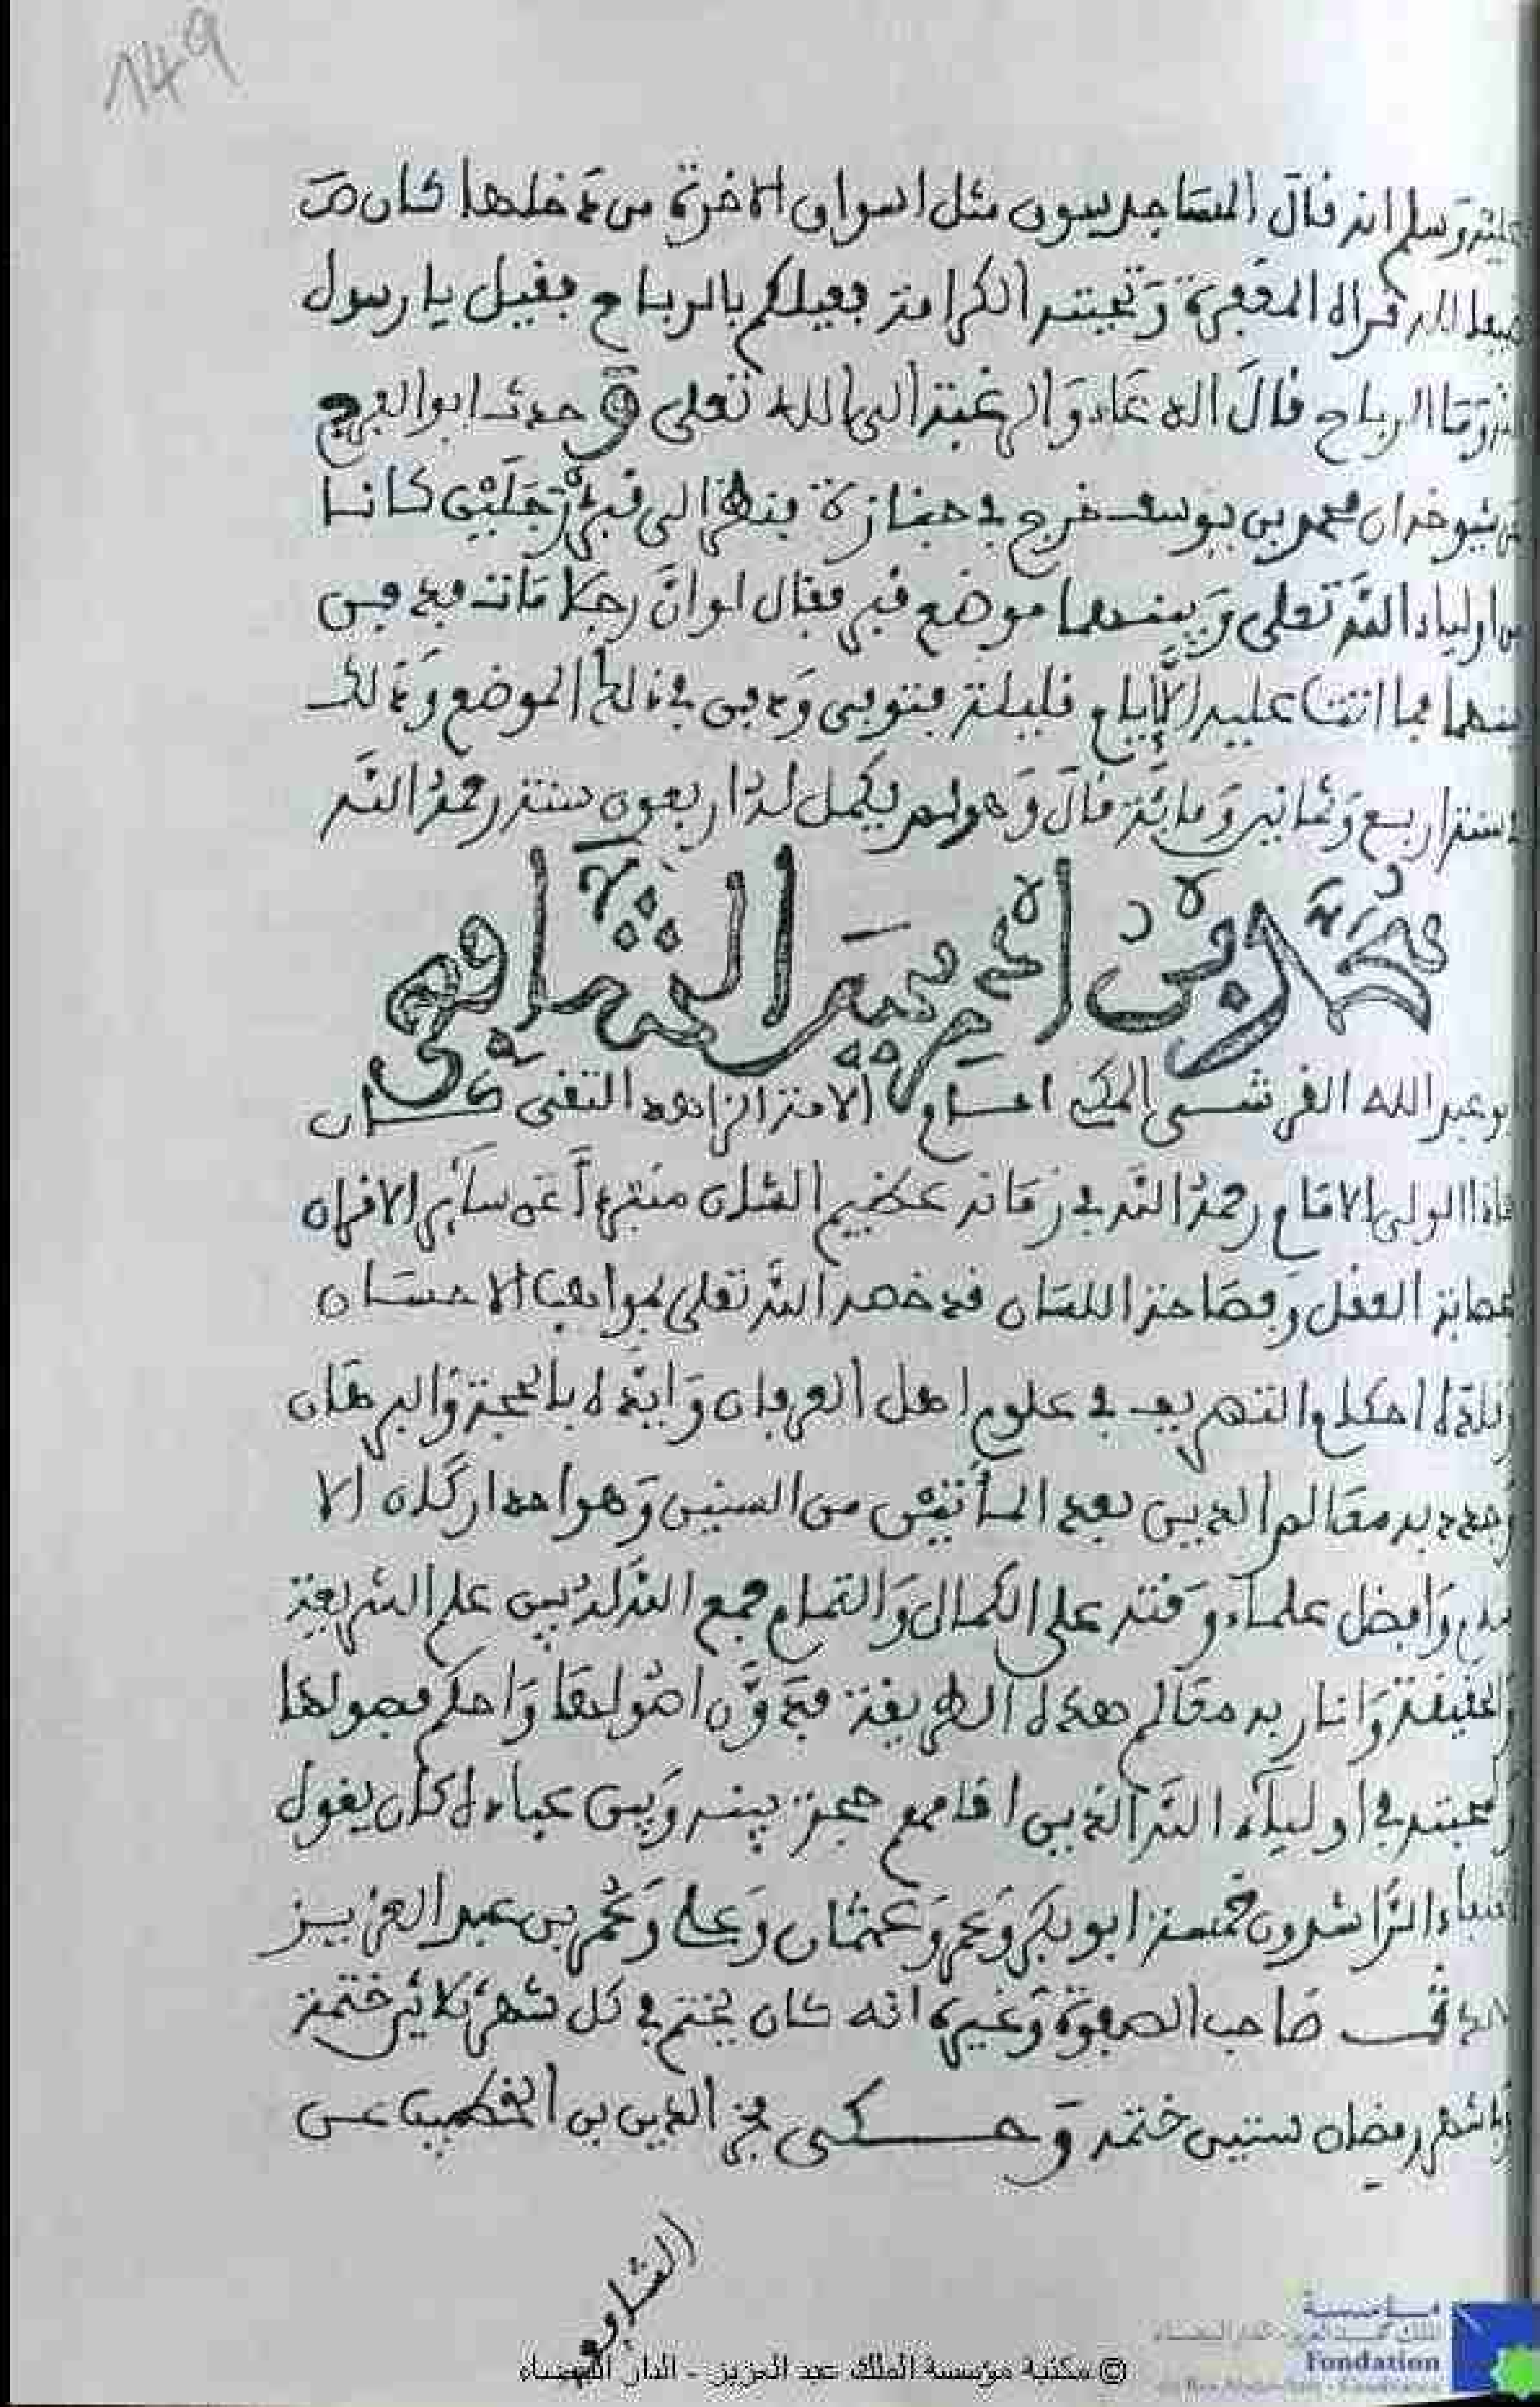 149
عليه وسلم انه قال المساجد سوق مثل اسواق الاخرة من دخلها كان ضيف
الله قراه المغفرة وتحيته الكرامة فعليكم بالرباح فقيل يا رسول
الله وما الرباح قال الدعاء والرغبة الى الله تعلى وحدث ابو الفرج
شيوخه ان محمد بن يوسف خرج في جنازة فنظر الى قبر رجلين كانا
من اولياء الله تعلى وبينهما موضع قبر فقال لو ان رجلا مات فدفن
بينهما فما اتت عليه الا ايام قليلة فتوفي ودفن في ذلك الموضع وذلك
سنة اربع وثمانين ومائة قال وهو لم يكمل له اربعون سنة رحمه الله
محمد بن ادريس الشافعي
ابو عبد الله القرشي المكي امام الامة الزاهد التقي كان
هذا الولي الامام رحمه الله في زمانه عظيم الشان منتزها عن سائر الاقران
العقل وفصاحة اللسان قد خصه الله تعلى بمواهب الاحسان
احكام التصريف في علوم اهل العرفان وايده بالحجة والبرهان
وجدد به معالم الدين بعد المأتين من السنين وهو احد اركان الا
وافضل علماء وقته على الكمال والتمام جمع الله له بين علم الشريعة
والحقيقة وانار به معالم هذه الطريقة فدون اصولها واحكم فصولها
في اولياء الله الذين اقامهم حجة بينه وبين عباده كان يقول
الخلفاء الراشدون خمسة ابو بكر وعمر وعثمان وعلي وعمر بن عبد العزيز
صاحب الصفوة وغيره انه كان يختم في كل شهر ثلاثين ختمة
شهر رمضان ستين ختمة وحكى فخر الدين بن الخطيب عن
الشافعي
© مكتبة مؤسسة الملك عبد العزيز - الدار البيضاء
مؤسسة
الملك عبد العزيز - الدار البيضاء
Fondation